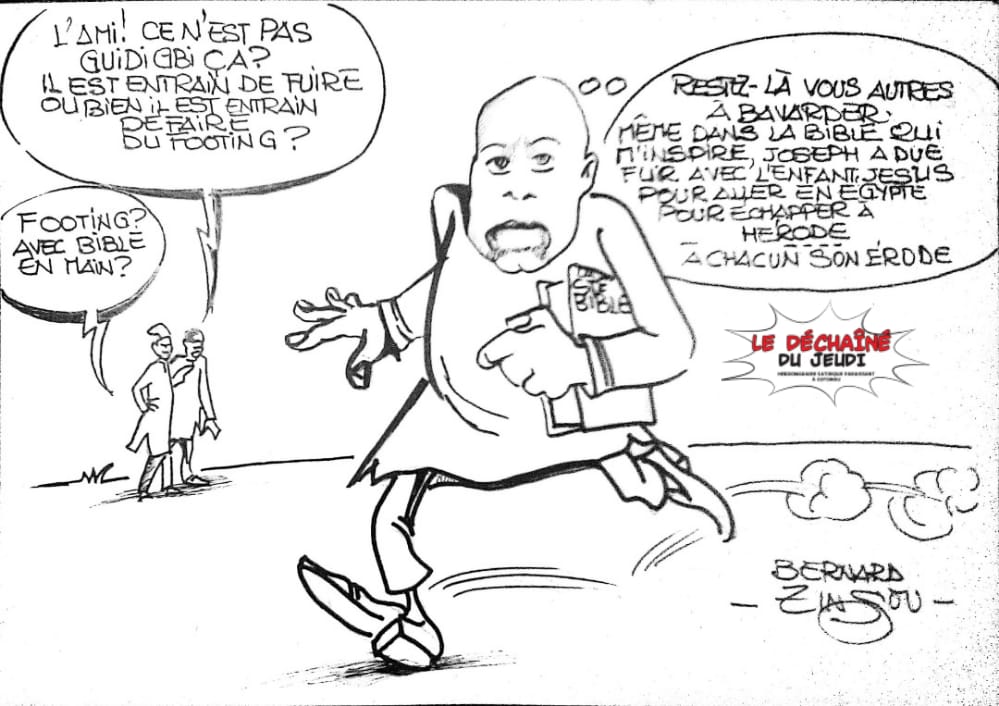 L'AMI! CE N'EST PAS
GUIDIGBI ÇA?
IL EST ENTRAIN DE FUIRE
OU BIEN IL EST ENTRAIN
DE FAIRE
DU FOOTING?
FOOTING?
AVEC BIBLE
EN MAIN?
RESTEZ-LÀ VOUS AUTRES
À BAVARDER.
MÊME DANS LA BIBLE QUI
M'INSPIRE, JOSEPH A DUE
FUIR AVEC L'ENFANT JESUS
POUR ALLER EN EGYPTE
POUR ÉCHAPPER À
HÉRODE
À CHACUN SON ÉRODE
STE
BIBLE
LE DÉCHAÎNÉ
DU JEUDI
HEBDOMADAIRE SATIRIQUE PARAISSANT
À COTONOU
BERNARD
- ZINSOU -